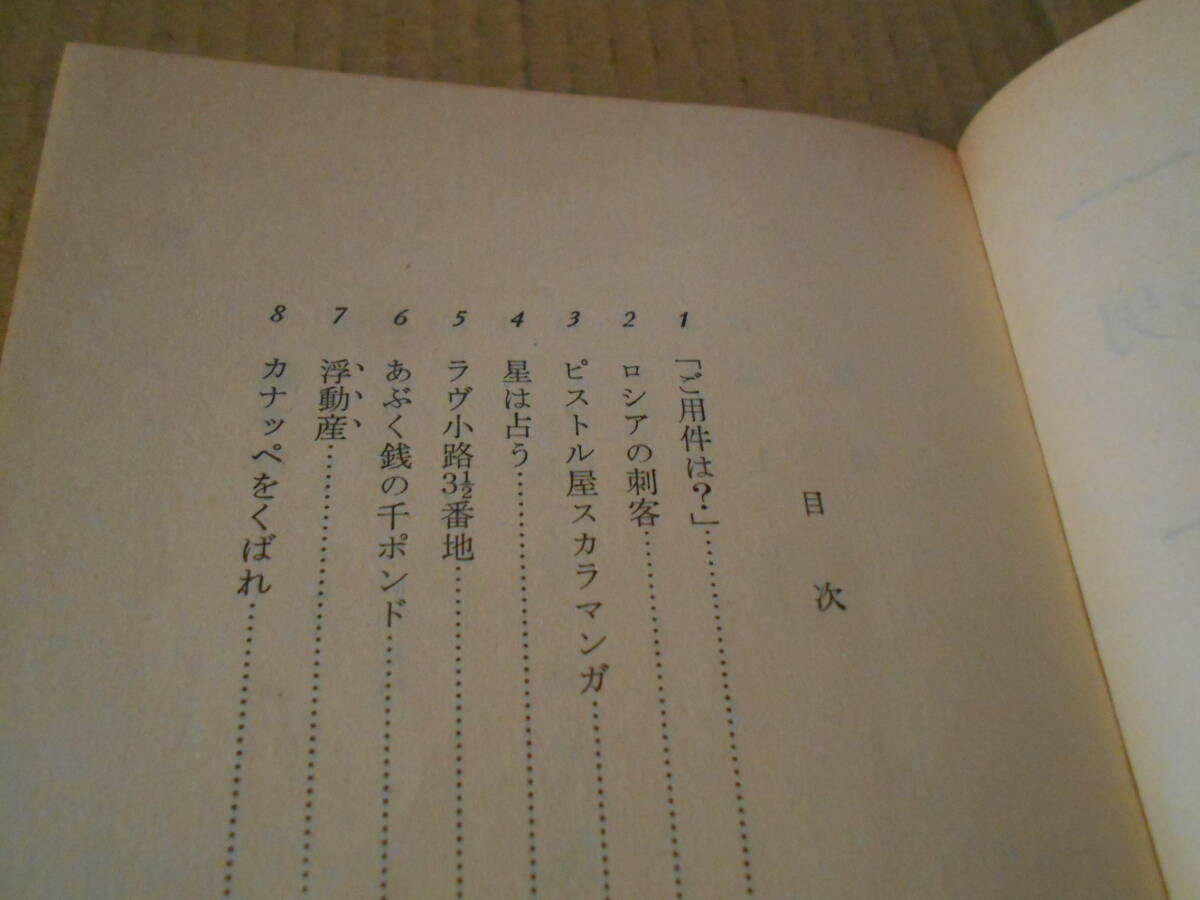 目次
1 「ご用件は?」
2 ロシアの刺客
3 ピストル屋スカラマンガ
4 星は占う
5 ラヴ小路3½番地
6 あぶく銭の千ポンド
7 浮動産
8 カナッペをくばれ